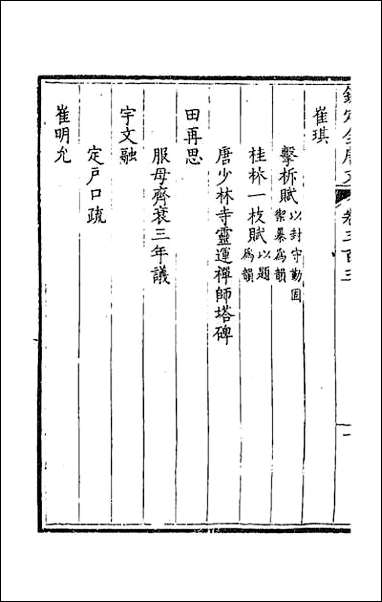 欽定全唐文 卷三百三 一
崔琪
擊柝賦 以封守勤固禦暴爲韻
桂林一枝賦 以題爲韻
唐少林寺靈運禪師塔碑
田再思
服母齊衰三年議
宇文融
定戶口疏
崔明允